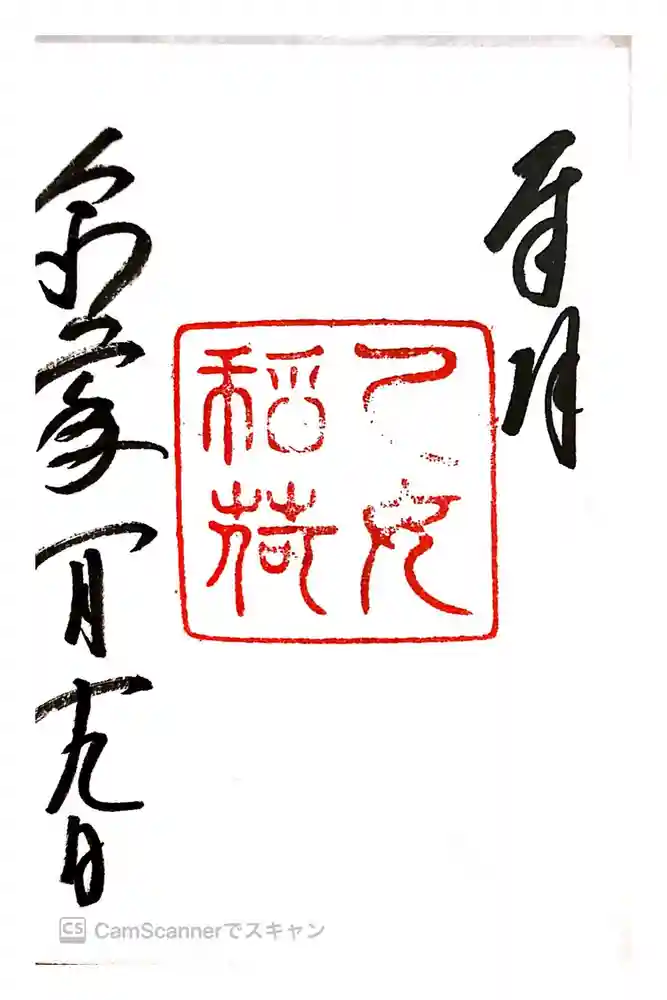 奉拝
乙女
稲荷
令和年一月十九日
CamScannerでスキャン